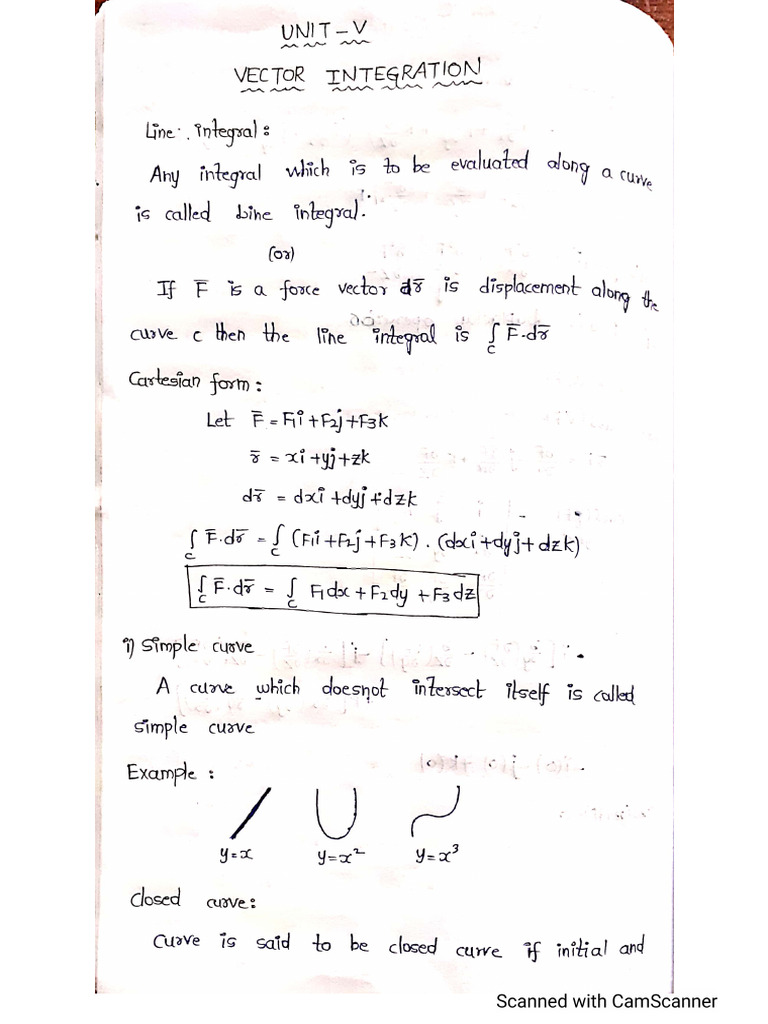 UNIT-V
VECTOR INTEGRATION
Line integral:
Any integral which is to be evaluated along a curve
is called Line integral.
(or)
If F̅ is a force vector dr̅ is displacement along the
curve c then the line integral is ∫c F̅.dr̅
Cartesian form:
Let F̅ = F1i+F2j+F3k
r̅ = xi+yj+zk
dr̅ = dxi+dyj+dzk
∫c F̅.dr̅ = ∫c (F1i+F2j+F3k).(dxi+dyj+dzk)
∫c F̅.dr̅ = ∫c F1dx+F2dy+F3dz
i) Simple curve
A curve which doesnot intersect itself is called
simple curve
Example:
y=x y=x² y=x³
Closed curve:
Curve is said to be closed curve if initial and
Scanned with CamScanner